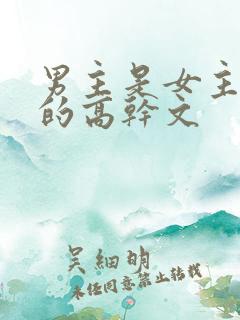 男主是女主
的高幹文
吴細明
未任同意禁止转载